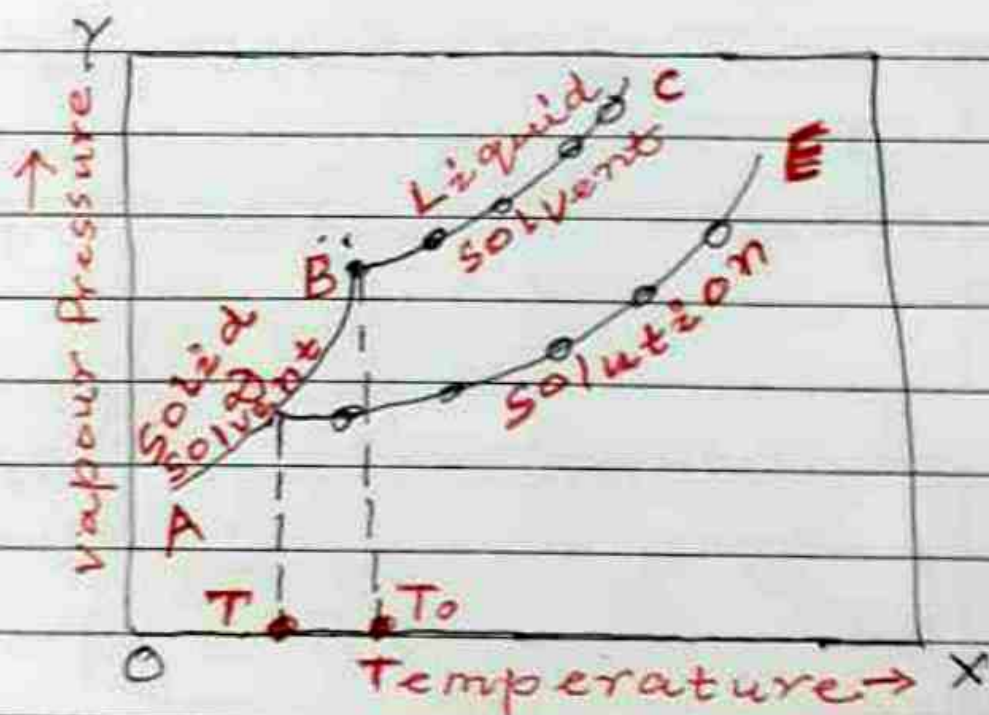 Y
Vapour Pressure →
Liquid
solvent
C
E
B
Solid
solvent
D
Solution
A
T
To
O
Temperature→
X